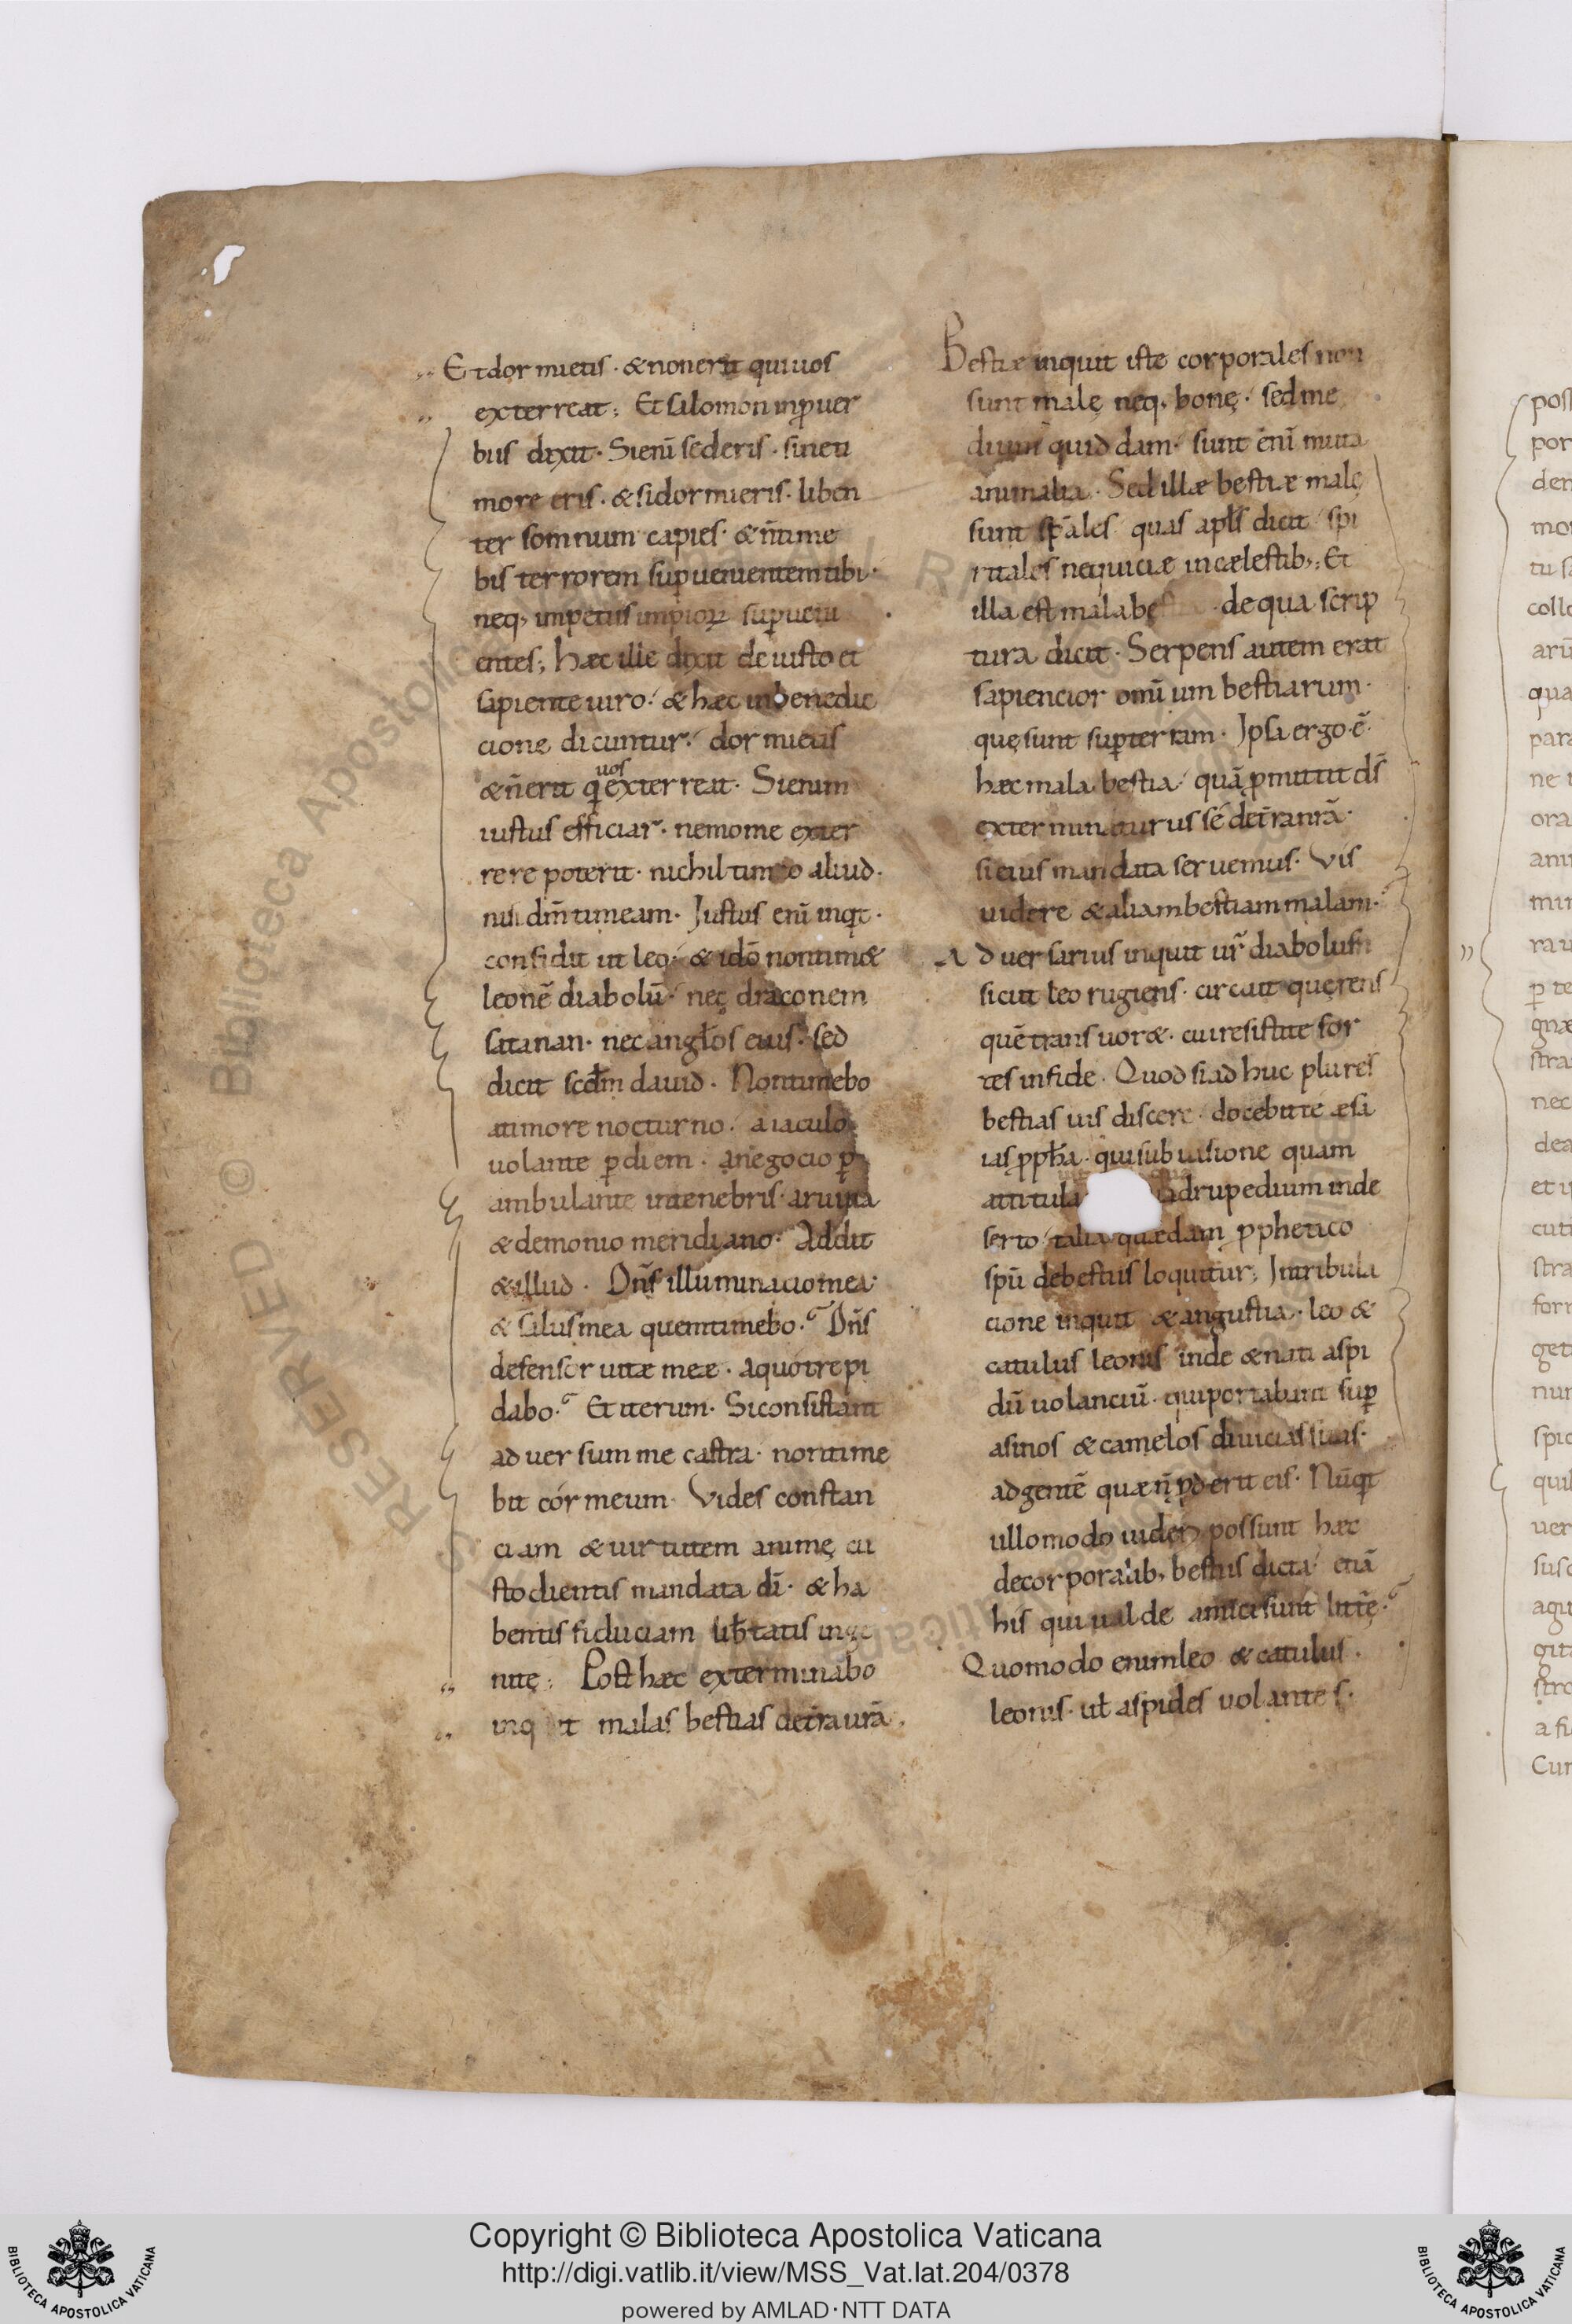 Et dormietis · & non erit qui uos
exterreat; Et salomon in ꝓuer
biis dixit · Si eni̅ sederis · sine ti
more eris · & si dormieris · liben
ter somnum capies · & n̅ time
bis terrorem sup̱uenientem tibi ·
neq; impetus impioꝝ sup̱ueni
entes; Hæc ille dixit de iusto et
sapiente uiro · & hæc in benedic
cione dicuntur · dormietis
& n̅ erit q̇ uos exterreat · Si enim
iustus efficiar · nemo me exter
rere poterit · nichil timeo aliud ·
nisi dn̅m timeam · Iustus eni̅ inqt ·
confidit ut leo · & ido̅ non tim&
leone̅ diabolu̅ · nec draconem
satanan · nec anglos eius · sed
dicit scd̅m dauid · Non timebo
a timore nocturno · a iaculo
uolante p̱ diem · a negocio p̱
ambulante in tenebris · a ruina
& demonio meridiano · Addit
& illud · Dn̅s illuminacio mea ·
& salus mea quem timebo · Dn̅s
defensor uitæ meæ · a quo trepi
dabo · Et iterum · Si consistant
aduersum me castra · non time
bit cor meum · Vides constan
ciam & uirtutem animę cu
stodientis mandata di̅ · & ha
bentis fiduciam lib̅tatis inge
nitę; Post hæc exterminabo
inq it malas bestias de t̅ra ura̅ ·
Bestiæ inquit iste corporales non
sunt malę neq; bonę · sed me
dium quiddam · sunt eni̅ muta
animalia · Sed illæ bestiæ malę
sunt sp̅ales quas apl̅s dicit spi
ritales nequiciæ in cælestib;; Et
illa est mala be · de qua scrip
tura dicit · Serpens autem erat
sapiencior omnium bestiarum ·
quę sunt sup̱ terram · Ipsa ergo e̅ ·
hæc mala bestia · qua̅ p̱mittit ds̅
exterminaturus se de t̅ra nr̅a̅ ·
si eius mandata seruemus · Vis
uidere & aliam bestiam malam ·
Aduersarius inquit ur̅ diabolus
sicut leo rugiens · circuit querens
que̅ transuor& · cui resistite for
tes in fide · Quod si adhuc plures
bestias uis discere · docebit te æsa
ias ꝓph̅a · qui sub uisione quam
attitula drupedium in de
serto talia quædam ꝓphetico
spu̅ de bestiis loquitur; In tribula
cione inquit & angustia · leo &
catulus leonis inde & nati aspi
du̅ uolanciu̅ · qui portabant sup̱
asinos & camelos diuicias suas ·
ad gente̅ quæ n̅ ꝓderit eis · Nu̅qt
ullo modo uideri possunt hæc
de corporalib; bestiis dicta · etia̅
his qui ualde amici sunt litt̅ę ·
Quomodo enim leo & catulus ·
leonis · ut̅ aspides uolantes ·
Copyright © Biblioteca Apostolica Vaticana
http://digi.vatlib.it/view/MSS_Vat.lat.204/0378
powered by AMLAD·NTT DATA